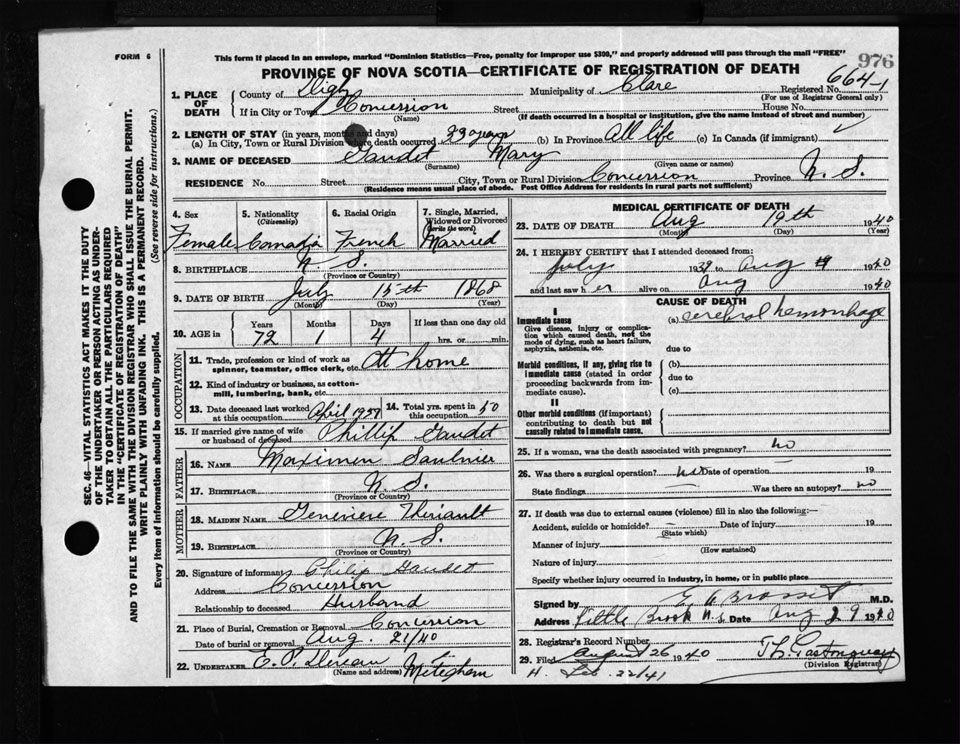 FORM 6
This form if placed in an envelope, marked "Dominion Statistics—Free, penalty for improper use $300," and properly addressed will pass through the mail "FREE"
976
PROVINCE OF NOVA SCOTIA—CERTIFICATE OF REGISTRATION OF DEATH
664-1
1. PLACE OF DEATH
County of Digby Municipality of Clare Registered No.
(For use of Registrar General only)
If in City or Town Concession Street House No.
(Name) (If death occurred in a hospital or institution, give the name instead of street and number)
2. LENGTH OF STAY (in years, months and days)
(a) In City, Town or Rural Division where death occurred 33 years (b) In Province All life (c) In Canada (if immigrant)
3. NAME OF DECEASED Gaudet Mary
(Surname) (Given name or names)
RESIDENCE No. Street City, Town or Rural Division Concession Province N. S.
(Residence means usual place of abode. Post Office Address for residents in rural parts not sufficient)
4. Sex
Female
5. Nationality (Citizenship)
Canada
6. Racial Origin
French
7. Single, Married, Widowed or Divorced (write the word)
Married
8. BIRTHPLACE N. S.
(Province or Country)
9. DATE OF BIRTH July 15th 1868
(Month) (Day) (Year)
10. AGE in Years Months Days If less than one day old
72 1 4 hrs. or min.
OCCUPATION
11. Trade, profession or kind of work as spinner, teamster, office clerk, etc. At home
12. Kind of industry or business, as cotton-mill, lumbering, bank, etc.
13. Date deceased last worked at this occupation April 1939
14. Total yrs. spent in this occupation 50
15. If married give name of wife or husband of deceased Phillip Gaudet
FATHER
16. NAME Maximen Saulnier
17. BIRTHPLACE N. S.
(Province or Country)
MOTHER
18. MAIDEN NAME Genevieve Theriault
19. BIRTHPLACE N. S.
(Province or Country)
20. Signature of informant Philip Gaudet
Address Concession
Relationship to deceased Husband
21. Place of Burial, Cremation or Removal Concession
Date of burial or removal Aug. 21/40
22. UNDERTAKER E. P. Meteghan
(Name and address)
MEDICAL CERTIFICATE OF DEATH
23. DATE OF DEATH Aug 19th 1940
(Month) (Day) (Year)
24. I HEREBY CERTIFY that I attended deceased from:
July 1939 to Aug 1940
and last saw her alive on Aug 1940
CAUSE OF DEATH
I
Immediate cause
Give disease, injury or complication which caused death, not the mode of dying, such as heart failure, asphyxia, asthenia, etc.
(a) cerebral hemorrhage
due to
Morbid conditions, if any, giving rise to immediate cause (stated in order proceeding backwards from immediate cause).
(b)
due to
(c)
II
Other morbid conditions (if important) contributing to death but not causally related to immediate cause.
25. If a woman, was the death associated with pregnancy? no
26. Was there a surgical operation? no Date of operation — 19
State findings — Was there an autopsy? no
27. If death was due to external causes (violence) fill in also the following:—
Accident, suicide or homicide? — Date of injury 19
(State which)
Manner of injury
(How sustained)
Nature of injury
Specify whether injury occurred in industry, in home, or in public place
Signed by M.D.
Address Little Brook N.S. Date Aug 29 1940
28. Registrar's Record Number
29. Filed August 26 1940
(Division Registrar)
22/41
SEC. 46—VITAL STATISTICS ACT MAKES IT THE DUTY
OF THE UNDERTAKER OR PERSON ACTING AS UNDER-
TAKER TO OBTAIN ALL THE PARTICULARS REQUIRED
IN THE "CERTIFICATE OF REGISTRATION OF DEATH"
AND TO FILE THE SAME WITH THE DIVISION REGISTRAR WHO SHALL ISSUE THE BURIAL PERMIT.
WRITE PLAINLY WITH UNFADING INK. THIS IS A PERMANENT RECORD.
Every item of information should be carefully supplied. (See reverse side for instructions.)